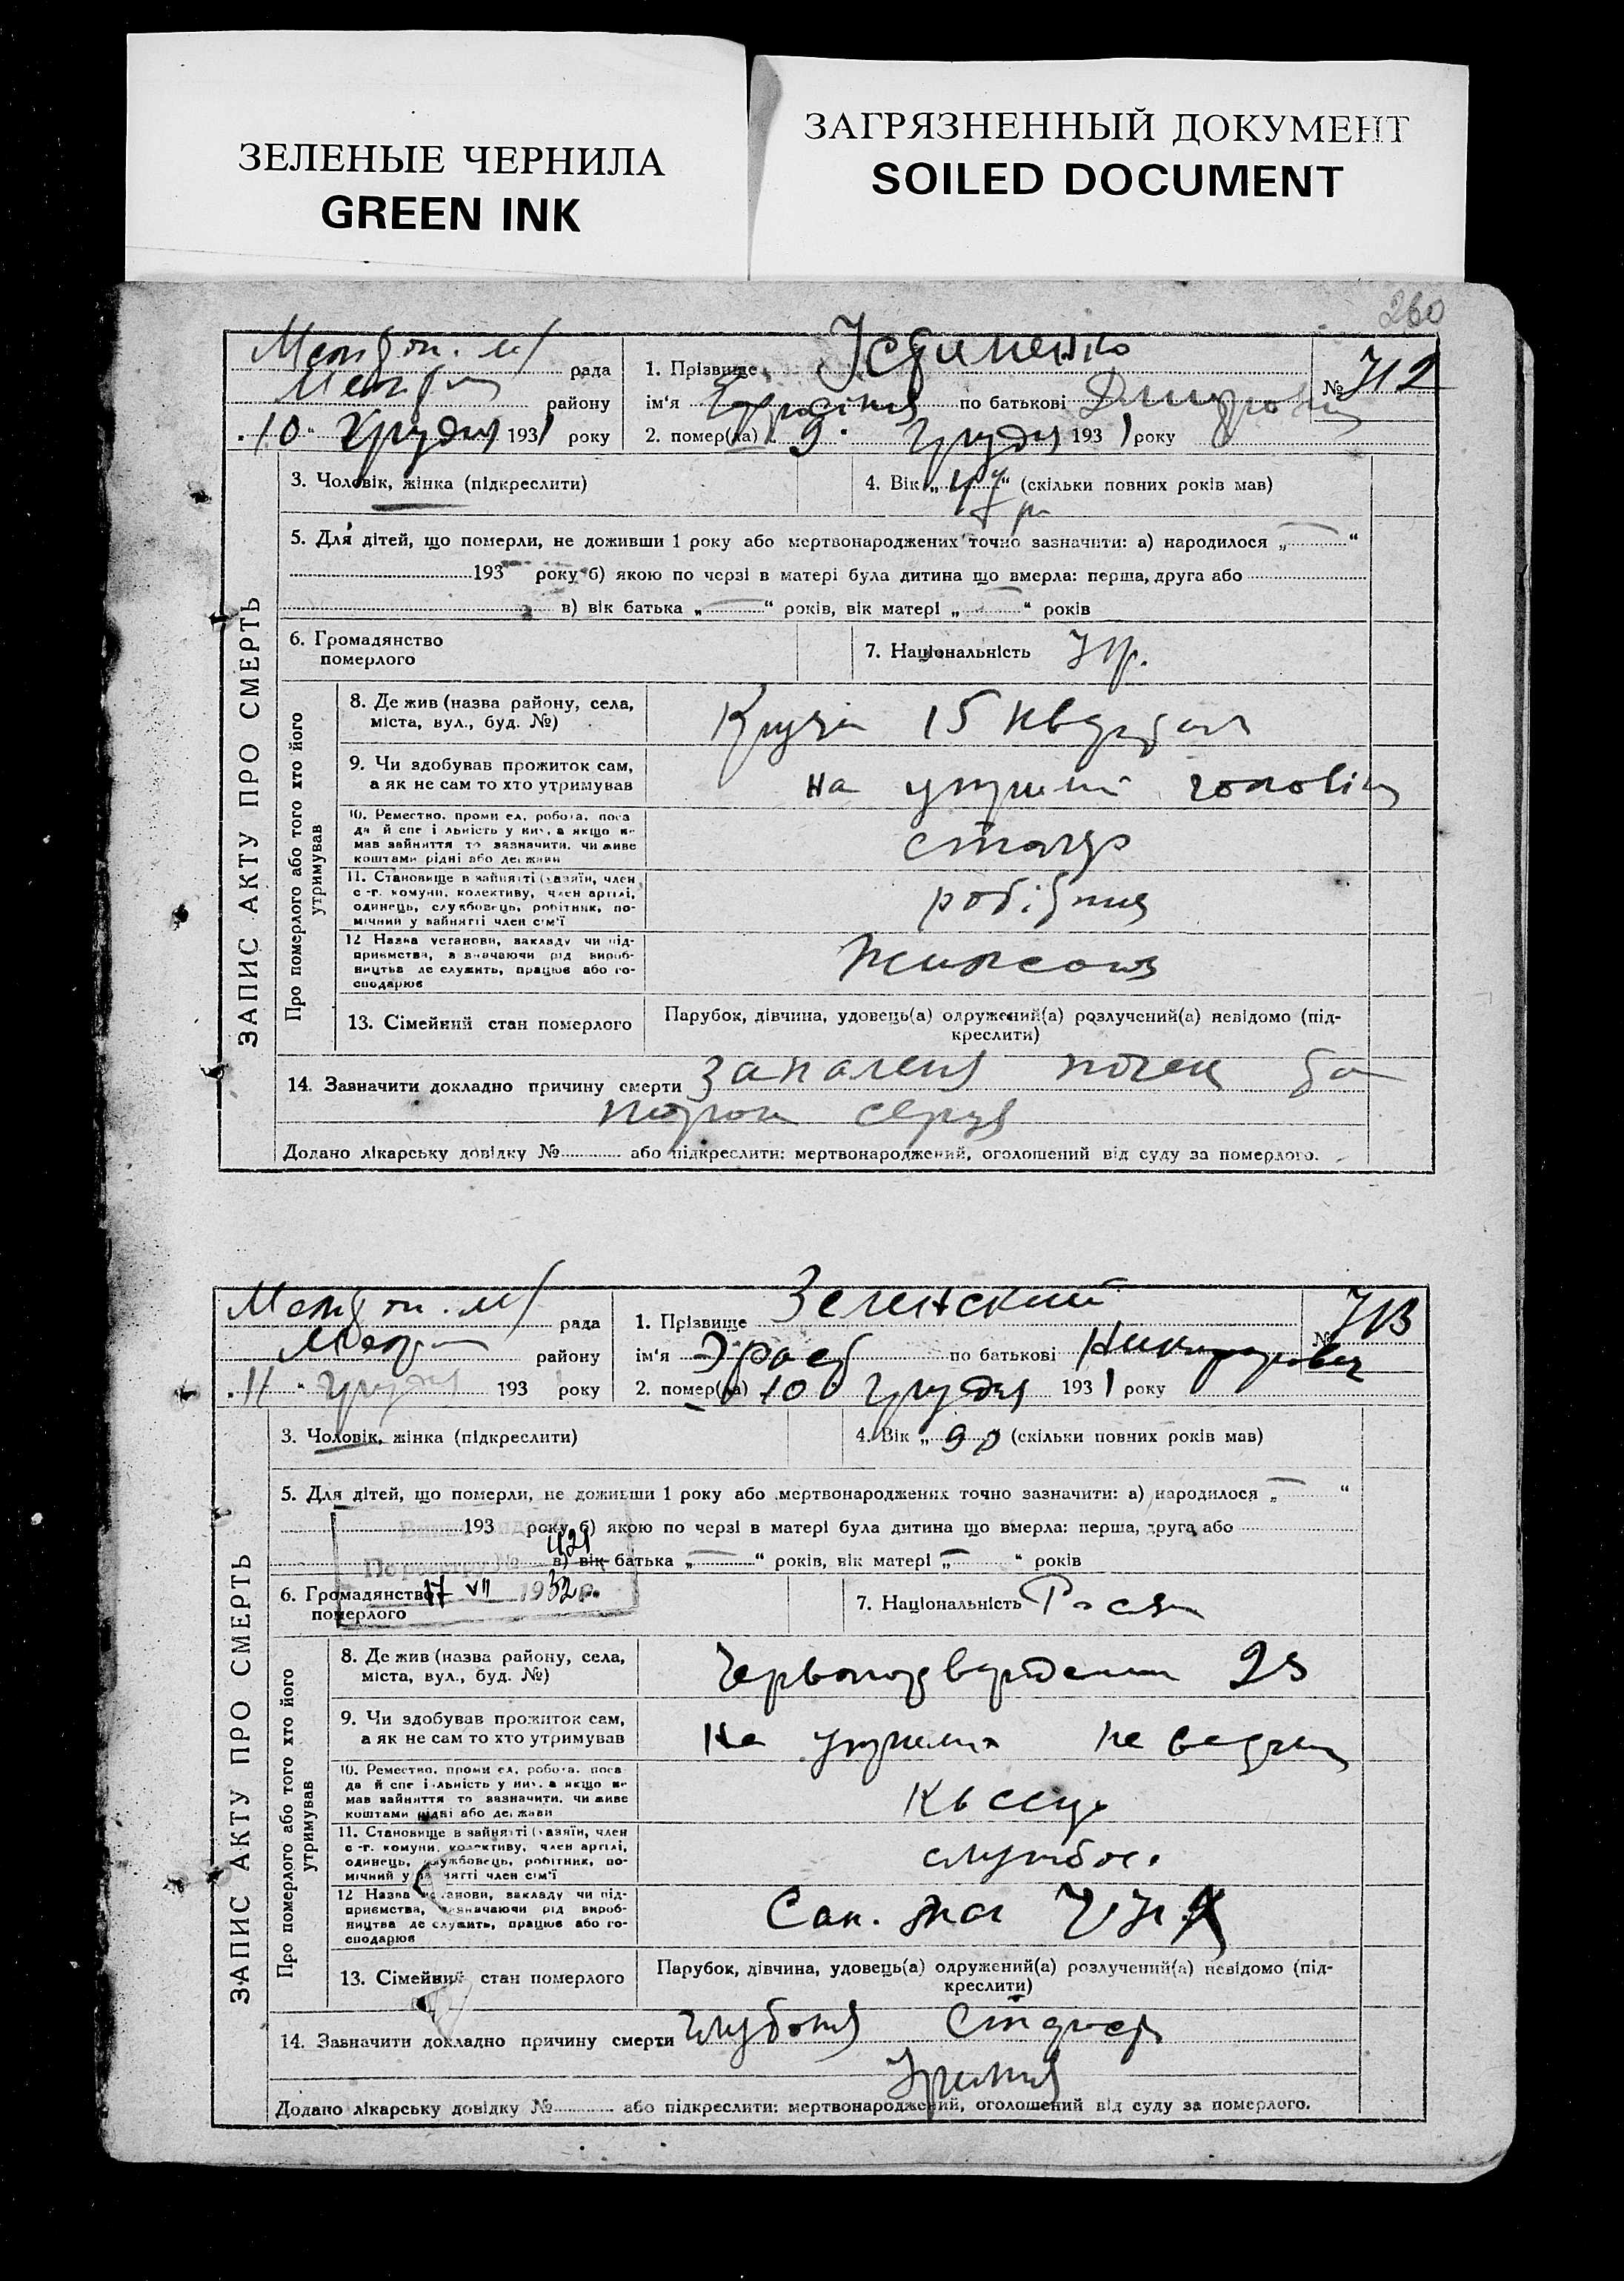 ЗЕЛЕНЫЕ ЧЕРНИЛА
GREEN INK
ЗАГРЯЗНЕННЫЙ ДОКУМЕНТ
SOILED DOCUMENT
260
рада
району
10 Грудня 1931 року
1. Прізвище
ім'я по батькові
2. помер(ла) 9 грудня 1931 року
№ 712
ЗАПИС АКТУ ПРО СМЕРТЬ
3. Чоловік, жінка (підкреслити)
4. Вік „ 47 “ (скільки повних років мав)
5. Для дітей, що померли, не доживши 1 року або мертвонароджених точно зазначити: а) народилося „ “
193 року б) якою по черзі в матері була дитина що вмерла: перша, друга або
в) вік батька „ “ років, вік матері „ “ років
6. Громадянство
померлого
7. Національність Укр.
Про померлого або того хто його
утримував
8. Де жив (назва району, села,
міста, вул., буд. №)
15
9. Чи здобував прожиток сам,
а як не сам то хто утримував
на утрипані чоловіка
10. Ремество, промисел, робота, поса
да й спеціальність у них, а якщо не
мав зайняття то зазначити, чи живе
коштами рідні або держави
11. Становище в зайнятті (хазяїн, член
с.-г. комуни, колективу, член артілі,
одинець, службовець, робітник, по-
мічний у зайнятті член сім'ї
робітник
12 Назва установи, закладу чи під-
приємства, зазначаючи рід вироб-
ництва де служить, працює або го-
сподарює
13. Сімейний стан померлого
Парубок, дівчина, удовець(а) одружений(а) розлучений(а) невідомо (під-
креслити)
14. Зазначити докладно причину смерти запаленя почек
порок серця
Додано лікарську довідку № або підкреслити: мертвонароджений, оголошений від суду за померлого.
рада
району
11 грудня 193 року
1. Прізвище Зелинский
ім'я по батькові
2. помер(ла) 10 грудня 1931 року
№ 713
ЗАПИС АКТУ ПРО СМЕРТЬ
3. Чоловік, жінка (підкреслити)
4. Вік „ 90 (скільки повних років мав)
5. Для дітей, що померли, не доживши 1 року або мертвонароджених точно зазначити: а) народилося „ “
193 року б) якою по черзі в матері була дитина що вмерла: перша, друга або
в) вік батька „ “ років, вік матері „ “ років
По реєстру № 421
17 VII 1932 р.
6. Громадянство
померлого
7. Національність
Про померлого або того хто його
утримував
8. Де жив (назва району, села,
міста, вул., буд. №)
9. Чи здобував прожиток сам,
а як не сам то хто утримував
На
10. Ремество, промисел, робота, поса
да й спеціальність у них, а якщо не
мав зайняття то зазначити, чи живе
коштами рідні або держави
11. Становище в зайнятті (хазяїн, член
с.-г. комуни, колективу, член артілі,
одинець, службовець, робітник, по-
мічний у зайнятті член сім'ї
службов.
12 Назва установи, закладу чи під-
приємства, зазначаючи рід вироб-
ництва де служить, працює або го-
сподарює
Сан.
13. Сімейний стан померлого
Парубок, дівчина, удовець(а) одружений(а) розлучений(а) невідомо (під-
креслити)
14. Зазначити докладно причину смерти глубокая
Додано лікарську довідку № або підкреслити: мертвонароджений, оголошений від суду за померлого.